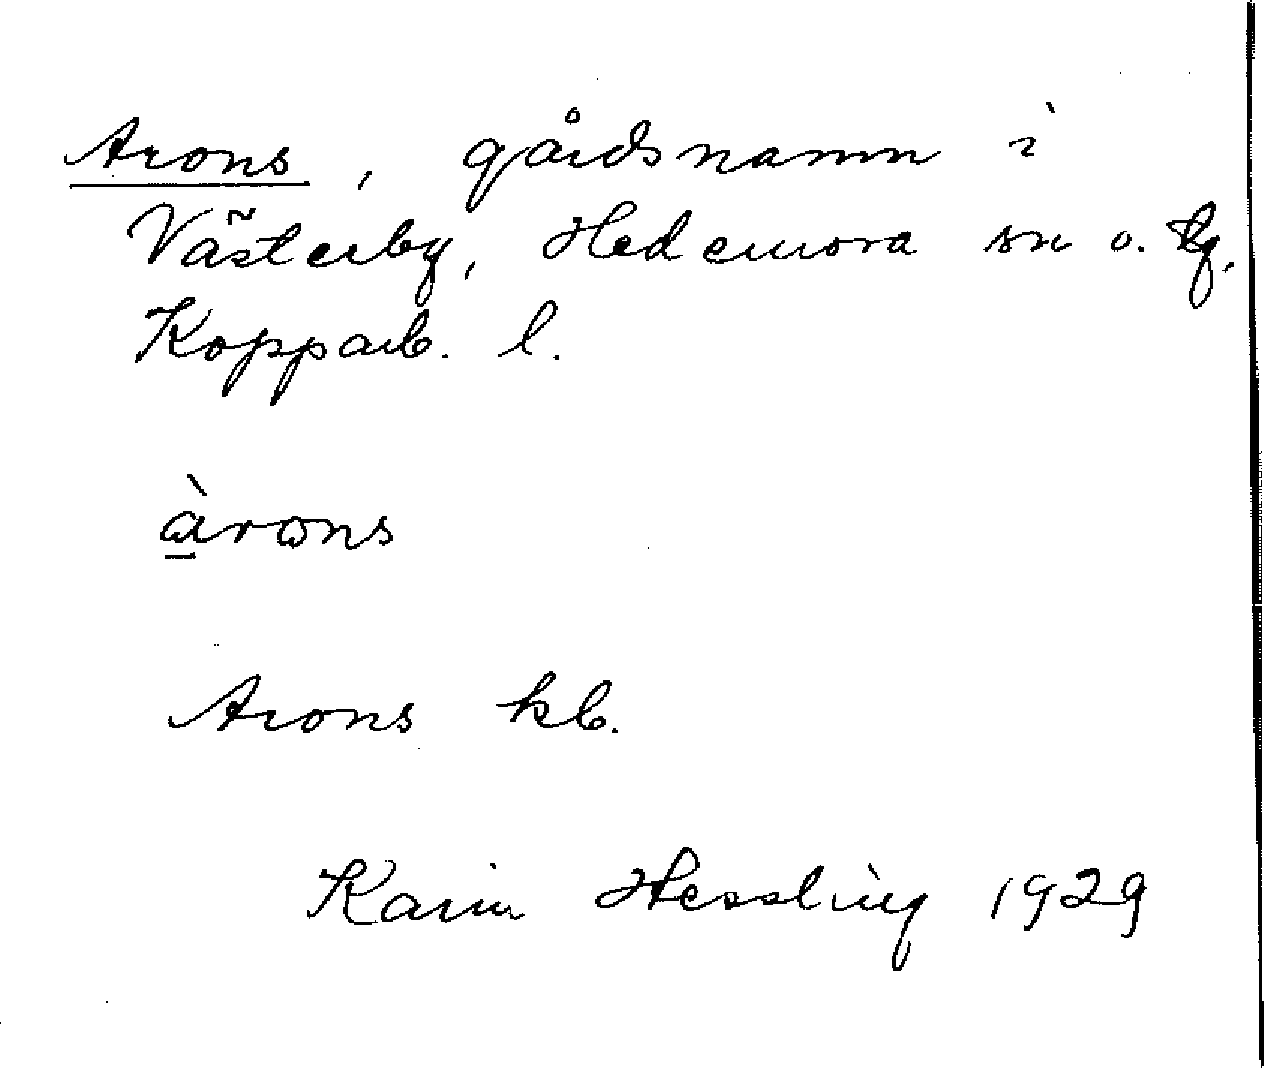 Arons, gårdsnamn i
Västerby, Hedemora sn o. tg,
Kopparb. l.
àrons
Arons kb.
Karin Hessling 1929